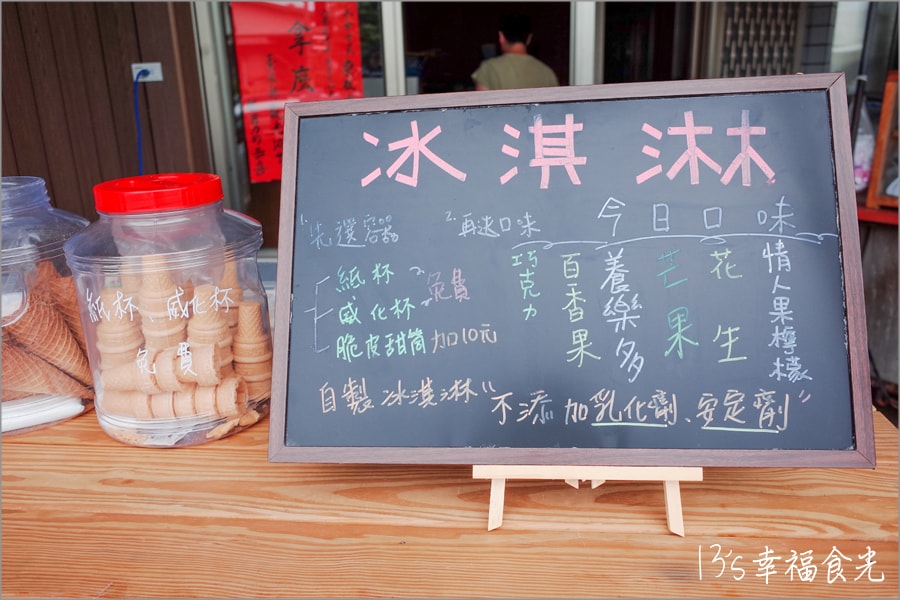 冰淇淋
1. 先選容器
2. 再選口味
今日口味
紙杯
威化杯
免費
脆皮甜筒 加10元
巧克力
百香果
養樂多
芒果
花生
情人果檸檬
自製冰淇淋"不添加乳化劑、安定劑"
紙杯、威化杯
免費
13's幸福食光